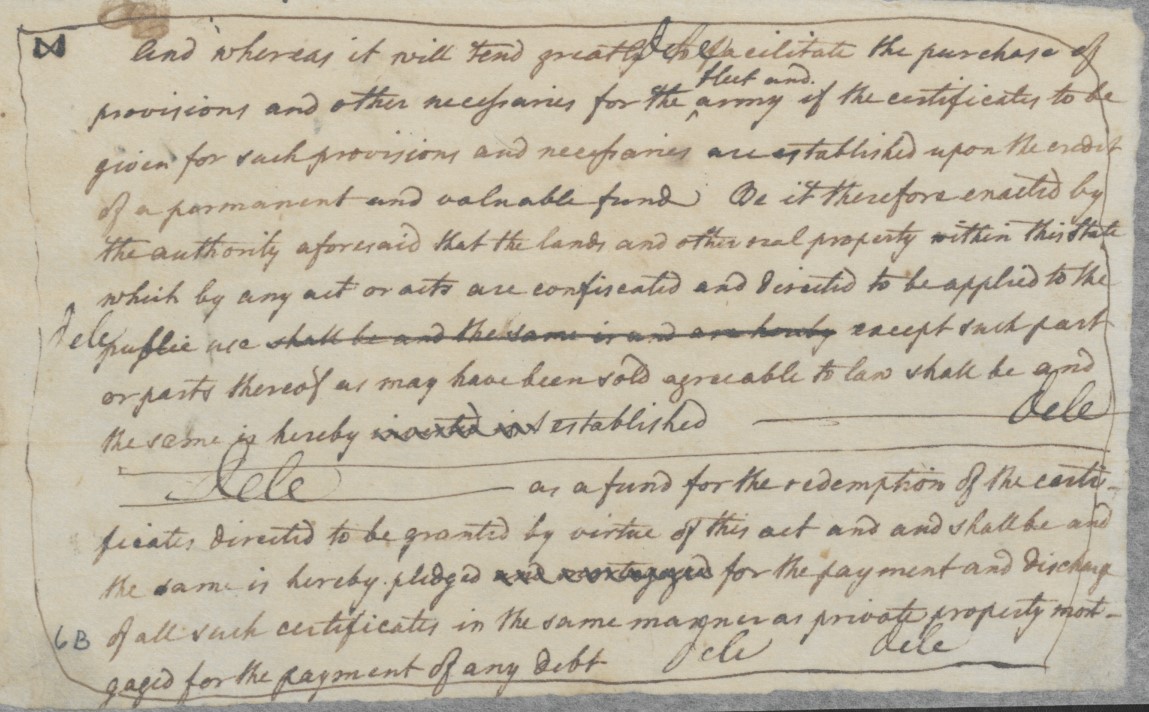 And whereas it will tend greatly to facilitate the purchase of
Dele
fleet and
provisions and other necessaries for the ^ army if the certificates to be
given for such provisions and necessaries are established upon the credit
of a permanent and valuable fund Be it therefore enacted by
the authority aforesaid that the lands and other real property within this State
which by any act or acts are confiscated and directed to be applied to the
Dele
public use shall be and the same is and are hereby except such part
or parts thereof as may have been sold agreeable to law shall be and
the same is hereby established
Dele
Dele as a fund for the redemption of the certi-
ficates directed to be granted by virtue of this act and and shall be and
the same is hereby pledged and mortgaged for the payment and discharge
of all such certificates in the same manner as private property mort-
gaged for the payment of any debt Dele Dele
6B